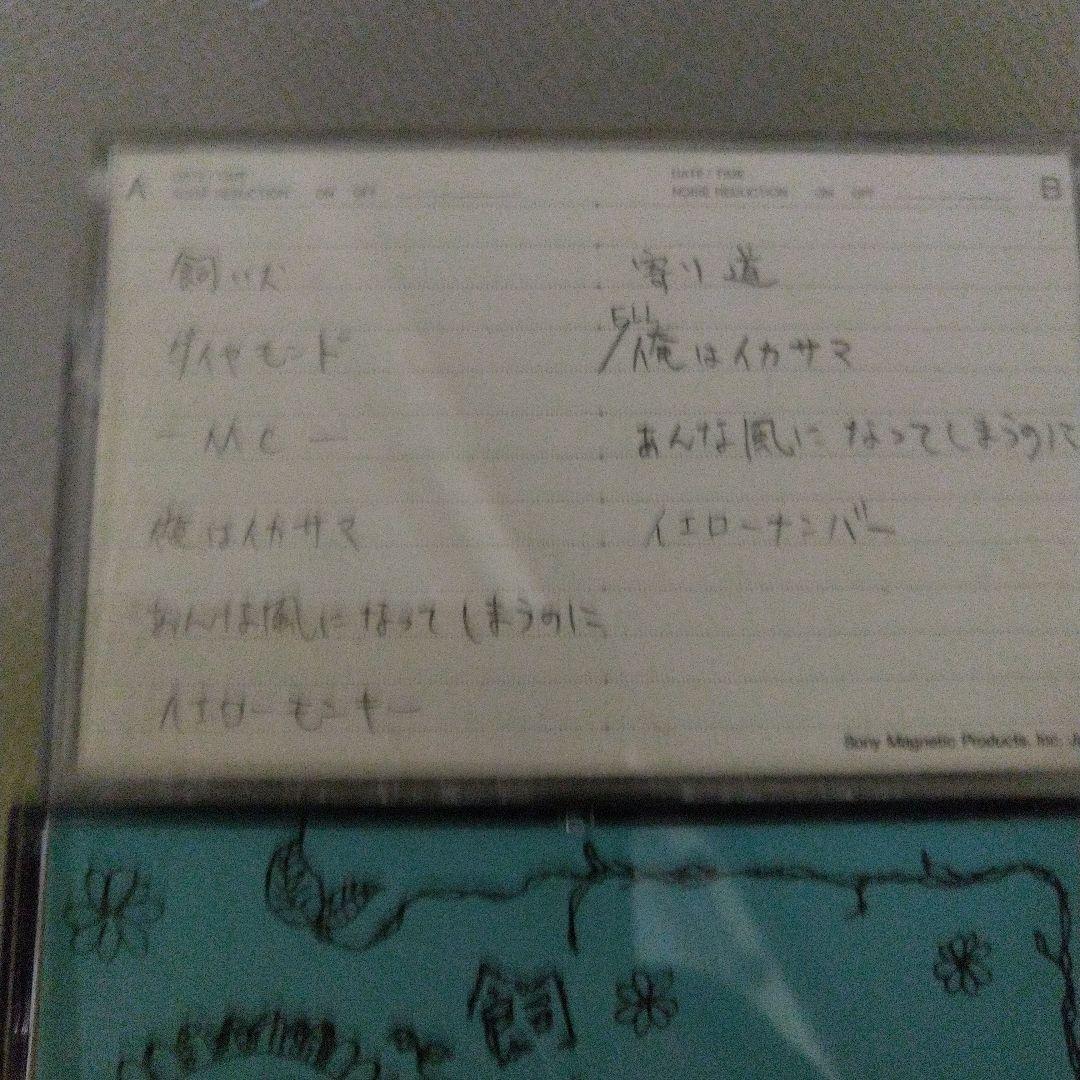 A DATE / TIME
NOISE REDUCTION ON OFF
飼い犬
ダイヤモンド
— MC —
俺はイカサマ
あんな風になってしまうのに
イエローモンキー
DATE / TIME B
NOISE REDUCTION ON OFF
寄り道
俺はイカサマ
あんな風になってしまうのに
イエローナンバー
Sony Magnetic Products. Inc. J
飼